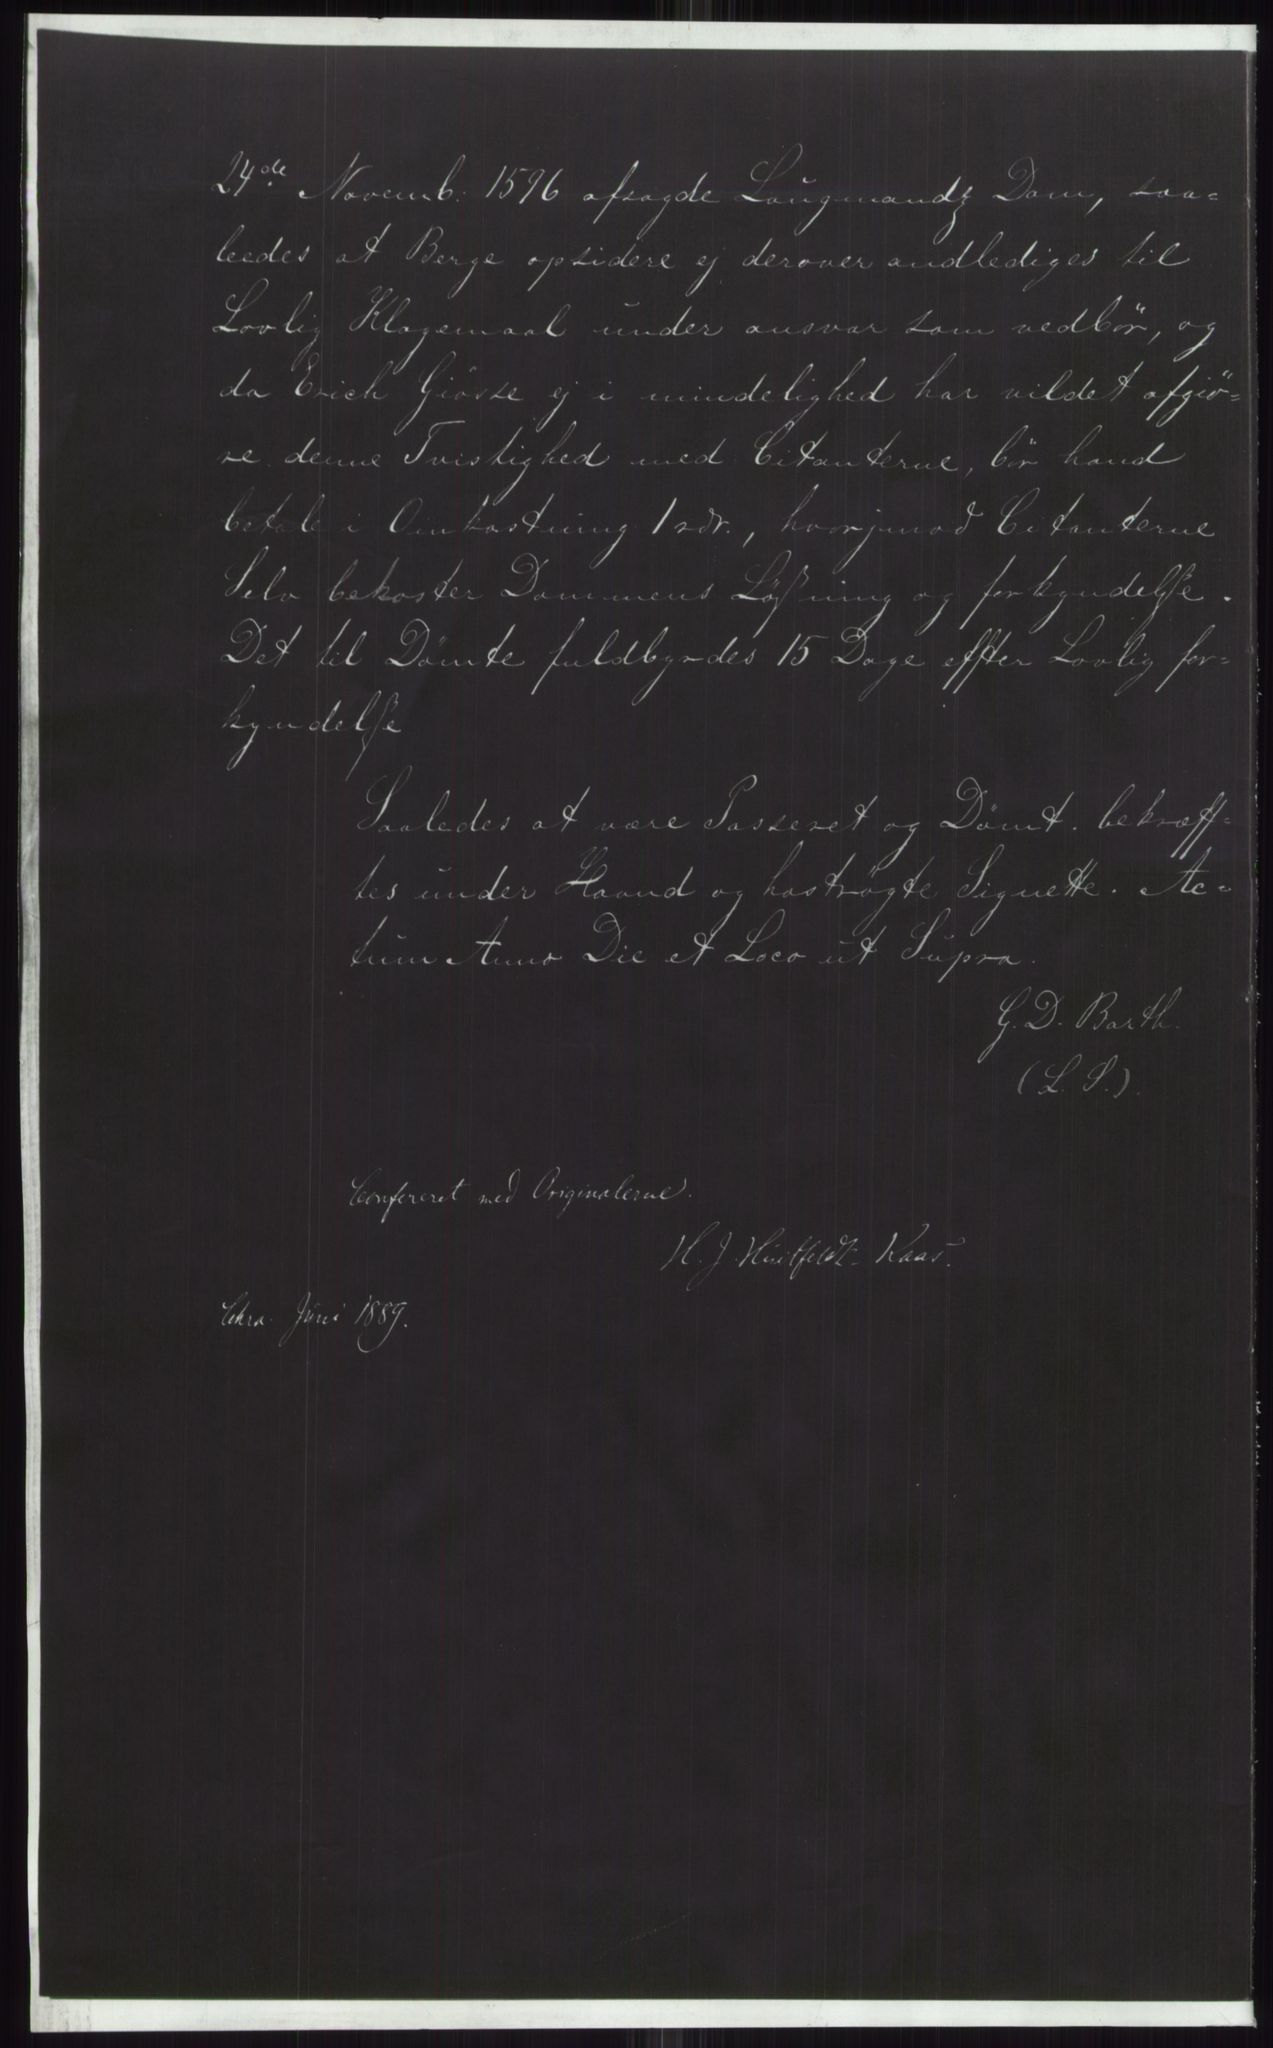 24de Novemb. 1596 afsagde Laugmandz Dom, saa=
leedes at Berge opsidere ej derover andlediges til
Lovlig Klagemaal under ansvar som vedbör, og
da Erich Giösse ej i mindelighed har vildet afgiö=
re denne Tvistighed med Citanterne, bör hand
betale i Omkostning 1 rdr., hvorjmod Citanterne
Selv bekoster Dommens Lößning og forkyndelße.
Det til Dömte fuldbyrdes 15 Dage effter Lovlig for=
kyndelße
Saaledes at være Passeret og Dömt. bekræff=
tes under Haand og hoströgte Signette. Ac=
tum Anno Die et Loco ut Supra.
G. D. Barth.
(L. S.).
Confereret med Originalerne.
H. J. Huitfeldt-Kaas.
Chra. Juni 1889.